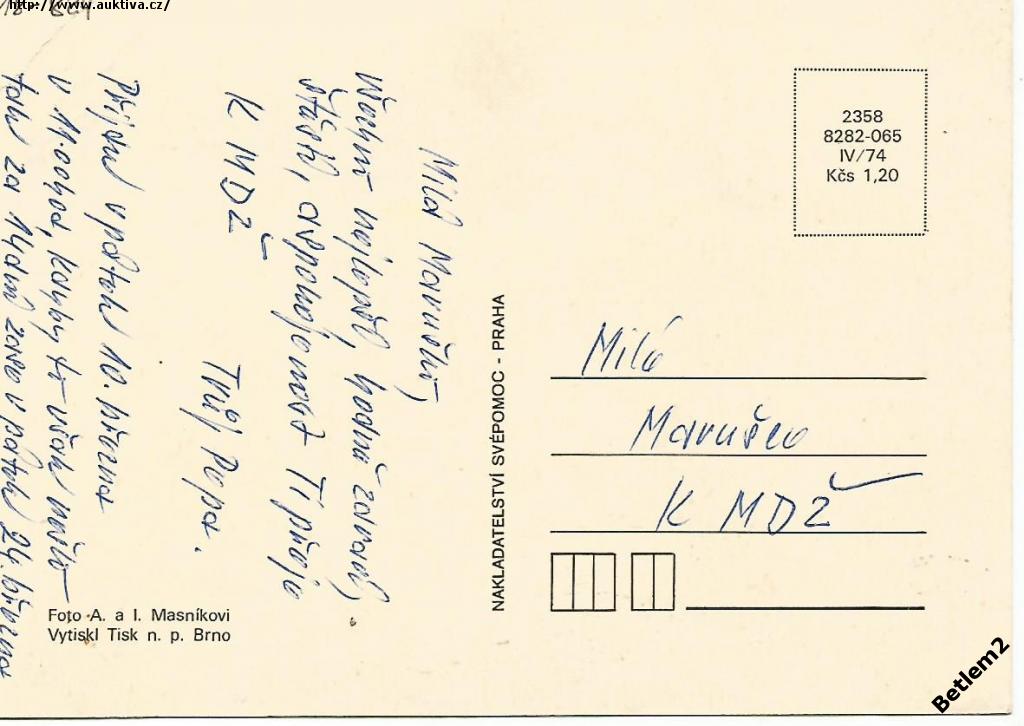 http://www.auktiva.cz/
Milá Maruško,
Všechno nejlepší, hodně zdraví,
štěstí, a spokojenost Ti přeje
K MDŽ
Tvůj Pepa.
Přijdu v pátek 10. března
v 11.00 hod, kdyby to však nešlo
tak za 14 dní zase v pátek 24. března
Foto A. a I. Masníkovi
Vytiskl Tisk n. p. Brno
NAKLADATELSTVÍ SVÉPOMOC - PRAHA
2358
8282-065
IV/74
Kčs 1,20
Milá
Maruško
K MDŽ
Betlem2